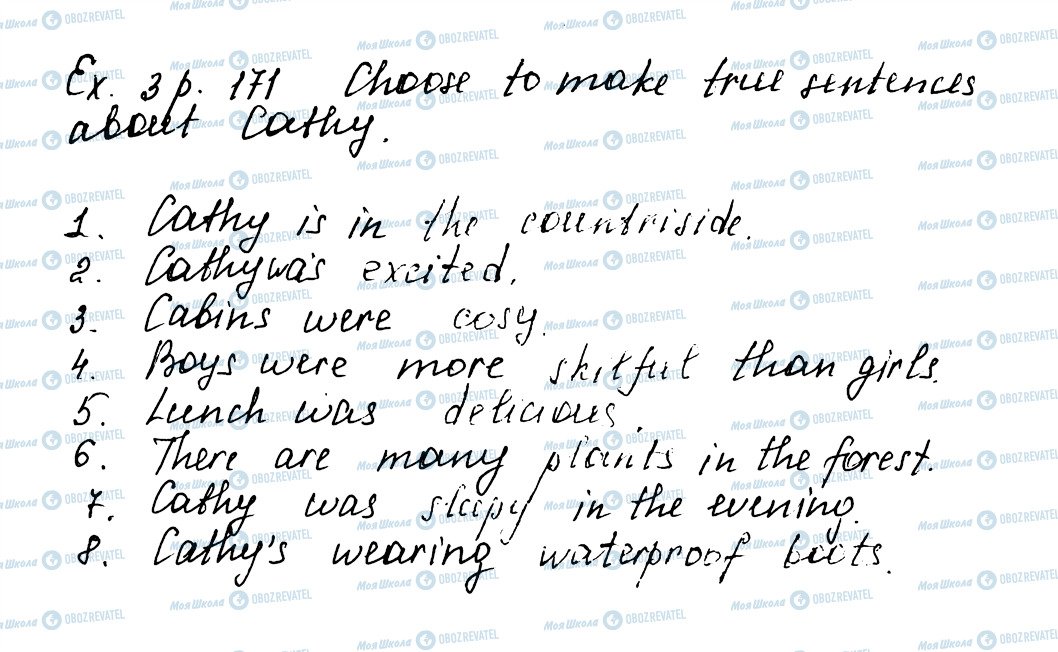 Ex. 3 p. 171 Choose to make true sentences
about Cathy.
1. Cathy is in the countriside.
2. Cathy was excited.
3. Cabins were cosy.
4. Boys were more skilful than girls.
5. Lunch was delicious.
6. There are many plants in the forest.
7. Cathy was slepy in the evening.
8. Cathy's wearing waterproof boots.